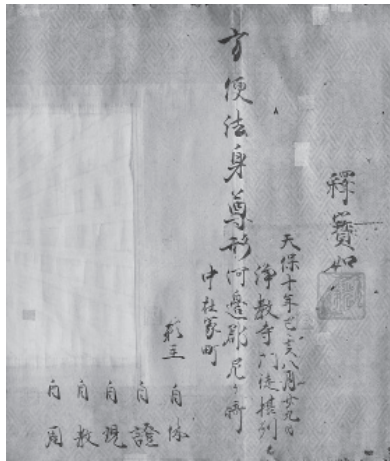 釋寳如
天保十年己亥八月廿九日
浄教寺門徒摂刕
方便法身尊形
河邊郡尼ヶ崎
中在家町
願主
自證
自現
自教
自周